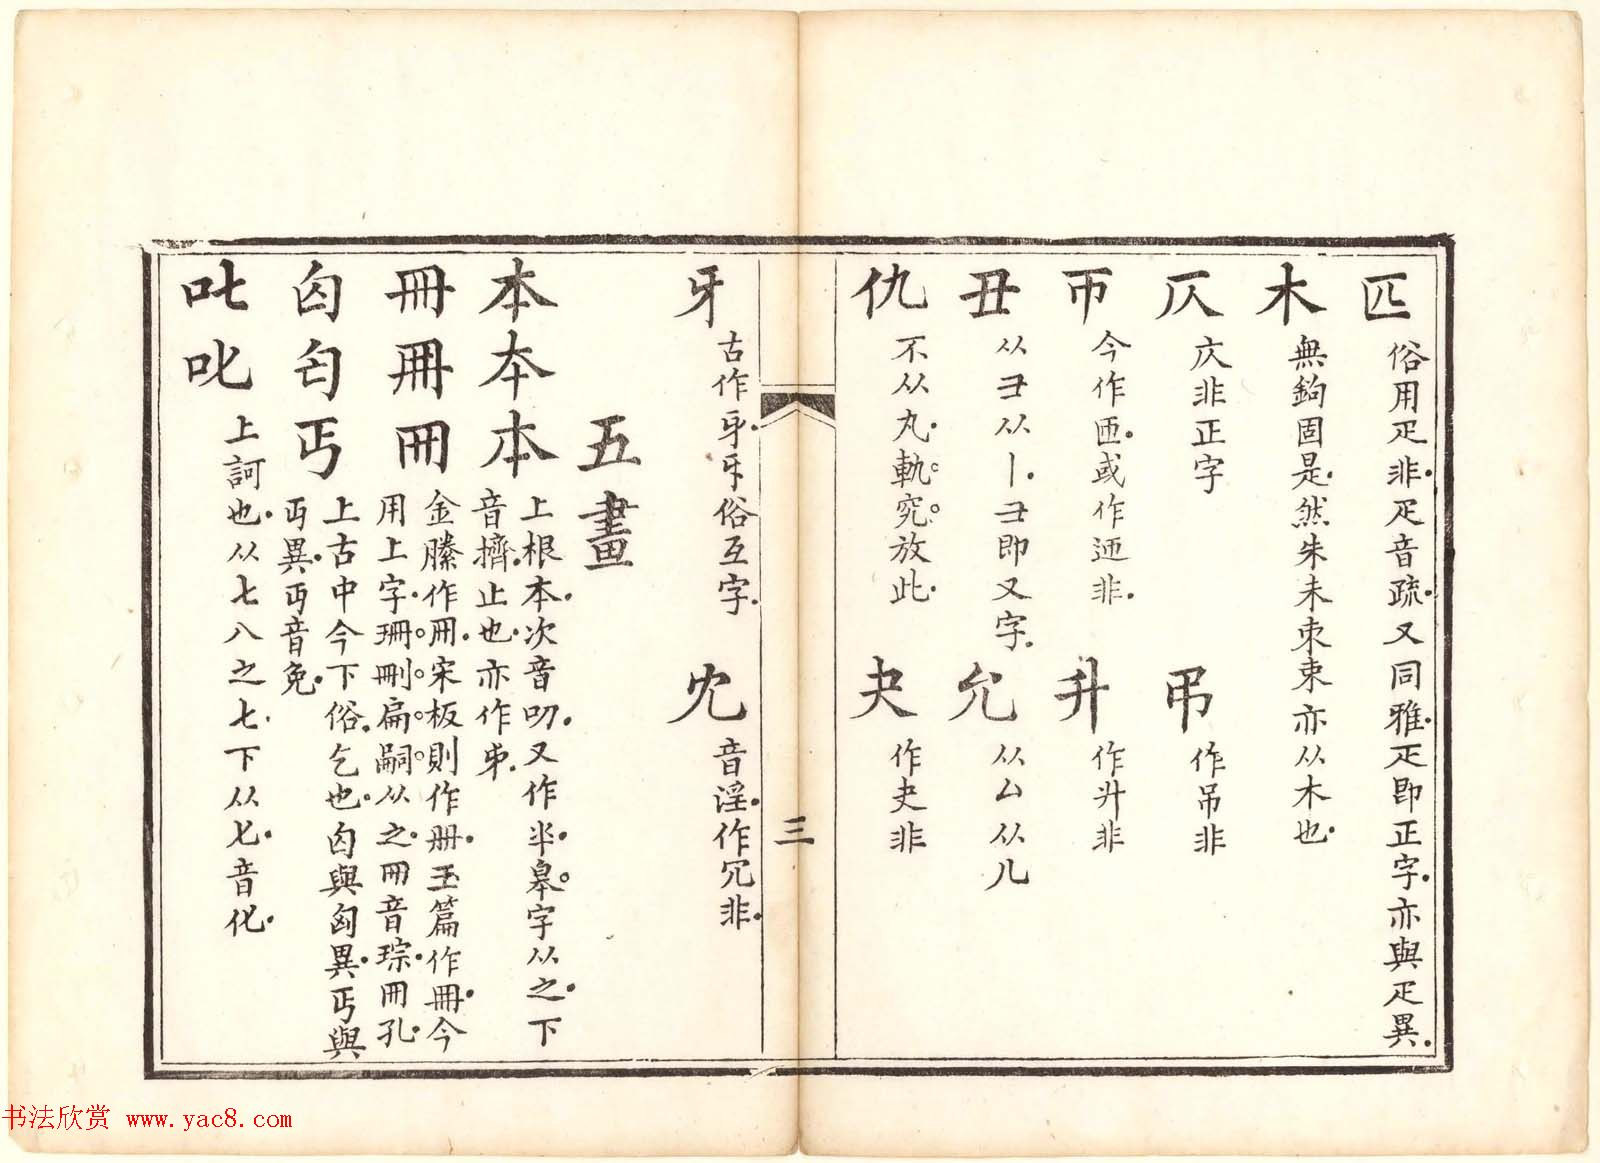 匹 俗用疋非疋音疏又同雅疋即正字亦與疋異
木 無鉤固是然朱未朿束亦从木也
仄 庂非正字 弔 作吊非
帀 今作匝或作迊非 升 作廾非
丑 从彐从丨彐即又字 允 从厶从儿
仇 不从丸軌究放此 夬 作叏非
三
牙 古作㸦㸦俗互字 冘 音淫作冗非
五畫
本夲 上根本次音叨又作半皋字从之下
音擠止也亦作𠂔
冊 金縢作冊宋板則作册玉篇作冊今
用上字珊刪扁嗣从之冊音琮冊孔
匃匄丐 上古中今下俗乞也匃與匈異丐與
丏異丏音免
𠮟叱 上訶也从七八之七下从𠤎音化
书法欣赏 www.yac8.com